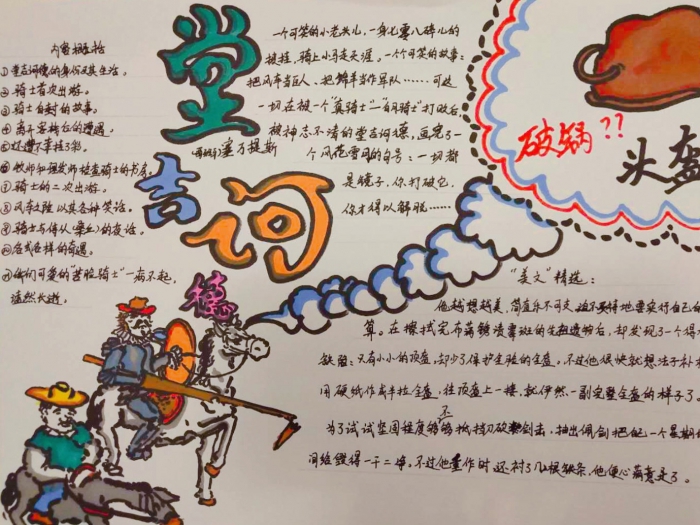 内容概括
①堂吉诃德的身份及其生活。
②骑士首次出游。
③骑士自封的故事。
④离开客栈后的遭遇。
⑤还遭不幸种种。
⑥牧师和理发师检查骑士的书房。
⑦骑士的二次出游。
⑧风车大陆以其各种笑话。
⑨骑士与侍从(桑丘)的友谊。
⑩各式各样的奇遇。
⑪我们可爱的“苦脸骑士”一病不起,
溘然长逝。
堂
吉
诃
德
塞万提斯
一个可笑的小老头儿,一身七零八碎儿的
披挂,骑上小马走天涯。一个个可笑的故事:
把风车当巨人、把绵羊当军队……可这
一切在被一个“真骑士”—“白月骑士”打败后,
被神志不清的堂吉诃德,画完了一
个风花雪月的句号:一切都
是镜子,你打破它,
你才得以解脱……
破锅??
头盔
“美文”精选:
他越想越美,简直乐不可支,迫不及待地要实行自己的
算。在擦拭完布满锈渍霉斑的先祖遗物后,却发现了一个很
缺陷:只有小小的顶盔,却少了保护全脸的全盔。不过他很快就想法子补
用硬纸作成半拉全盔,往顶盔上一接,就俨然一副完整全盔的样子了。
为了试试坚固程度够不够抵挡刀破剑击,抽出佩剑把它一个星期
间给毁得一干二净。不过他重作时还衬了几根铁条,他便心满意足了。